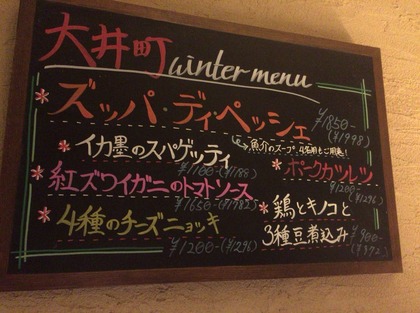 大井町 winter menu
ズッパ・ディペッシェ
¥1850-
(¥1998)
イカ墨のスパゲッティ
¥1100-(¥1188)
紅ズワイガニのトマトソース
¥1650-(¥1782)
4種のチーズニョッキ
¥1200-(¥1296)
ポークカツレツ
¥1200-(¥1296)
鶏とキノコと
3種豆煮込み
¥900-
(¥972)